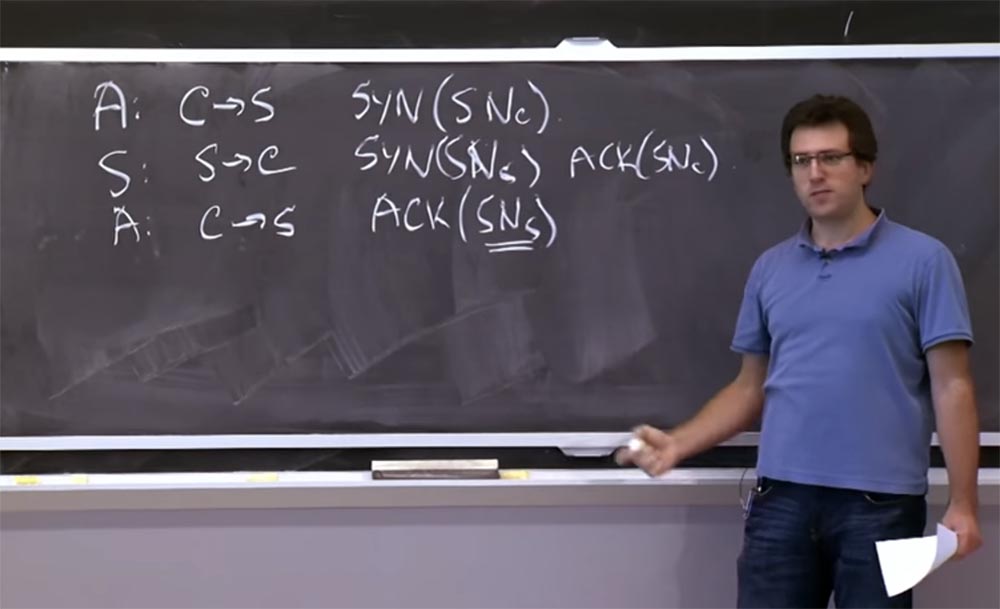 A: C→S SYN(SNc).
S: S→C SYN(SNs) ACK(SNc).
A: C→S ACK(SNs)